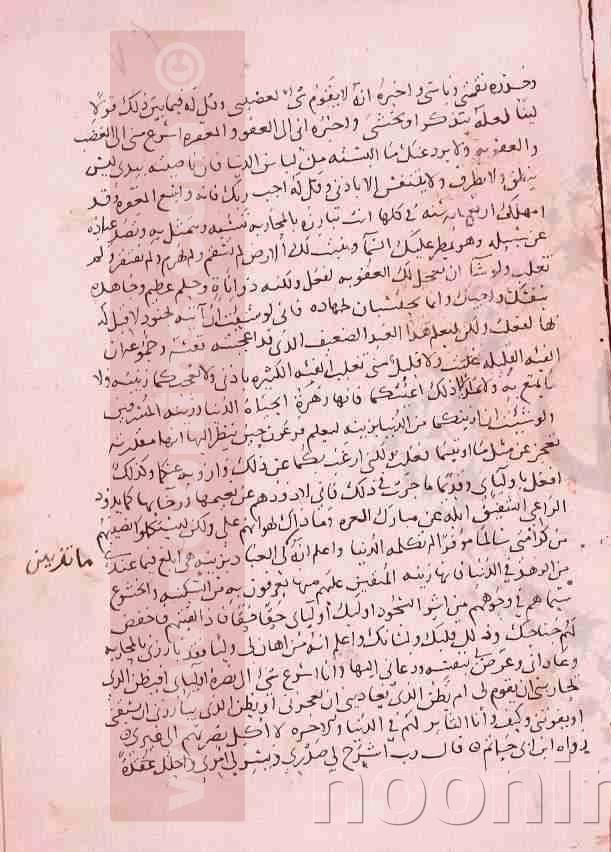 وحذره نقمتي وباسي واخبره انه لا يقوم شي لغضبي وقل له فيما بين ذلك قولا
لينا لعله يتذكر او يخشى واخبره اني الى العفو والمغفرة اسرع مني الى الغضب
والعقوبه ولا يروعنك ما البسته من لباس الدنيا فان ناصيته بيدي ليس
ينطق ولا يطرف ولا يتنفس الا باذني وقل له اجب ربك فانه واسع المغفرة وقد
امهلك اربع مايه سنه في كلها انت تبارزه بالمحاربه وتتمثل به وتصد عباده
عن سبيله وهو يمطر عليك السما وينبت لك الارض لم تسقم ولم تهرم ولم تفتقر ولم
تغلب ولو شا ان يعجل لك العقوبه لفعل ولكنه ذو اناة وحلم عظيم وجاهده
بنفسك واخيك وانتما تحتسبان بجهاده فاني لو شئت ان آتيه بجنود لا قبل له
بها لفعلت ولكن ليعلم هذا العبد الضعيف الذي قد اعجبته نفسه وجموعه ان
الفئه القليله ولا قليل مني تغلب الفئه الكثيره باذني ولا تعجبكما زينته ولا
ما متع به ولا تمدا الى ذلك اعينكما فانها زهرة الحياه الدنيا وزينه المترفين
ولو شئت ان ازينكما من الدنيا بزينه ليعلم فرعون حين ينظر اليها ان مقدرته
تعجز عن مثل ما اوتيتما فعلت ولكن ارغب بكما عن ذلك وازويه عنكما وكذلك
افعل باوليائي وقديما ما جرت في ذلك فاني لاذودهم عن نعيمها ورخائها كما يذود
الراعي الشفيق ابله عن مبارك وما ذاك لهوانهم علي ولكن ليستكملوا نصيبهم
من كرامتي سالما موفرا لم تكلمه الدنيا واعلم انه لم يتزين لي العباد بزينه هي ابلغ فيما عندي
ما تزين
من الزهد في الدنيا فانها زينه المتقين عليهم منها يعرفون به من السكينه والخشوع
سيماهم في وجوههم من اثر السجود اولئك اوليائي حقا حقا فاذا لقيتهم فاخفض
لهم جناحك وذلل قلبك ولسانك واعلم انه من اهان لي وليا فقد بارزني بالمحاربه
وعاداني وعرض نفسه ودعاني اليها وانا اسرع شي الى نصرة اوليائي افيظن الذي
يحاربني ان يقوم لي ام يظن الذي يعاديني ان يعجزني او يظن الذي يبارزني ان يسبقني
او يفوتني وكيف وانا الثاير لهم في الدنيا والاخره لا اكل نصرتهم الى غيري
رواه ابن ابي حاتم قال رب اشرح لي صدري ويسر لي امري واحلل عقدة
noonin